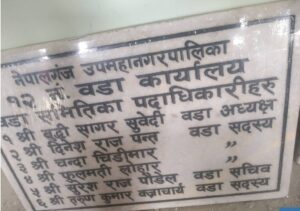 नेपालगंज उपमहानगरपालिका
१२ नं. वडा कार्यालय
वडा समितिका पदाधिकारीहरु
१ श्री बुद्धी सागर सुवेदी वडा अध्यक्ष
२ श्री दिनेश राज पन्त वडा सदस्य
३ श्री चन्दा चिडीमार "
४ श्री फुलमती लोहार "
५ श्री सुरेश राज पौडेल वडा सचिव
६ श्री तरुण कुमार बज्राचार्य वडा सदस्य